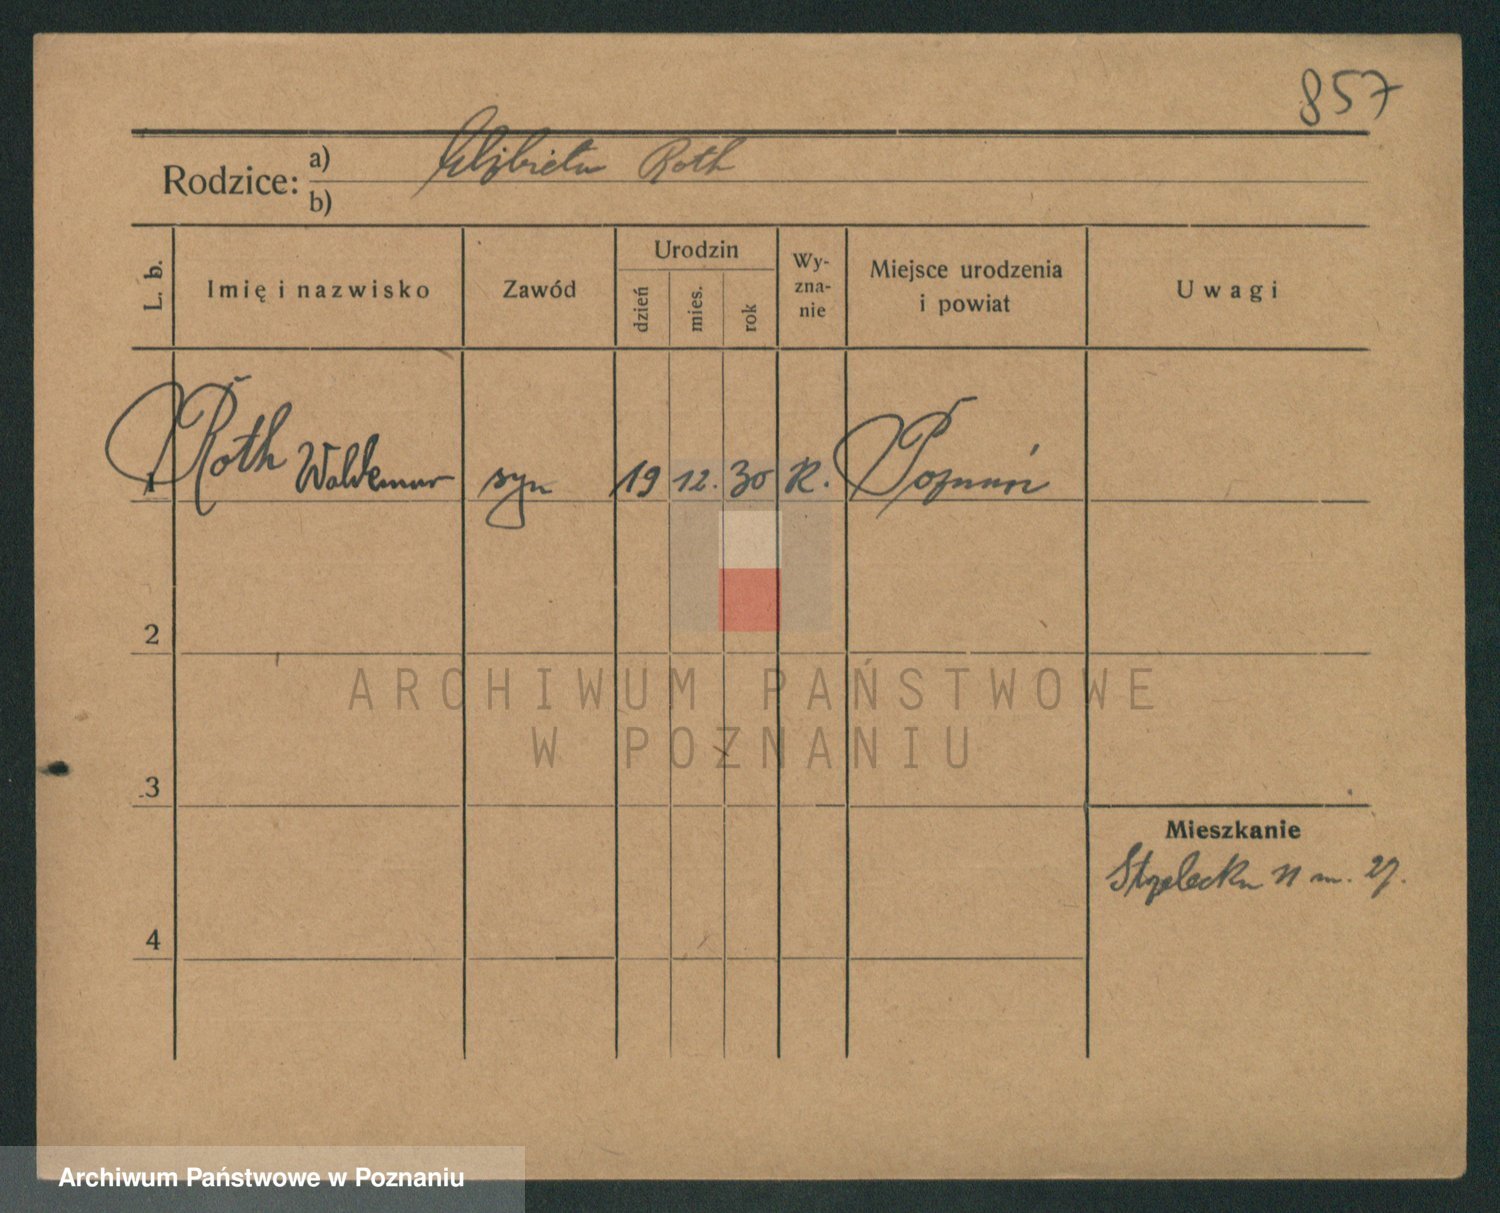 857
Rodzice: a) Elżbieta Roth
b)
L. b. Imię i nazwisko Zawód Urodzin dzień mies. rok Wy-zna-nie Miejsce urodzenia i powiat Uwagi
1 Roth Waldemar syn 19 12. 30 R. Poznań
2
ARCHIWUM PAŃSTWOWE
W POZNANIU
3
Mieszkanie
Strzelecka 11 m. 27.
4
Archiwum Państwowe w Poznaniu